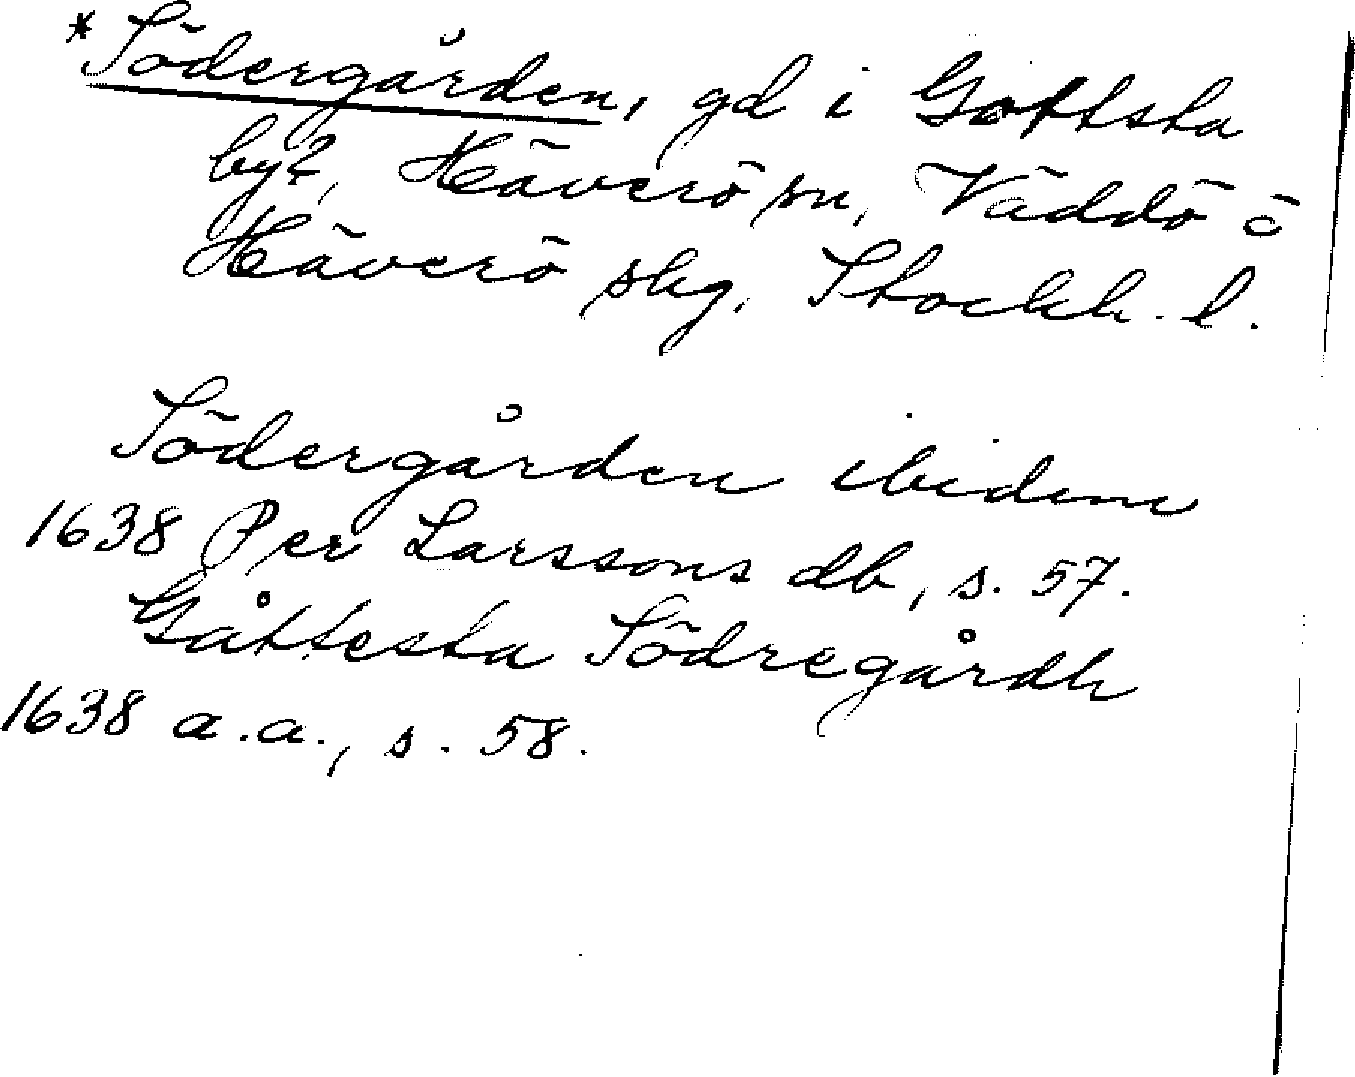 *Södergården, gd i Gottsta
by?, Häverö sn, Väddö o
Häverö skg, Stockh. l.
Södergården ibidem
1638 Per Larssons db, s. 57.
Gåttesta Södregårdh
1638 a.a., s. 58.